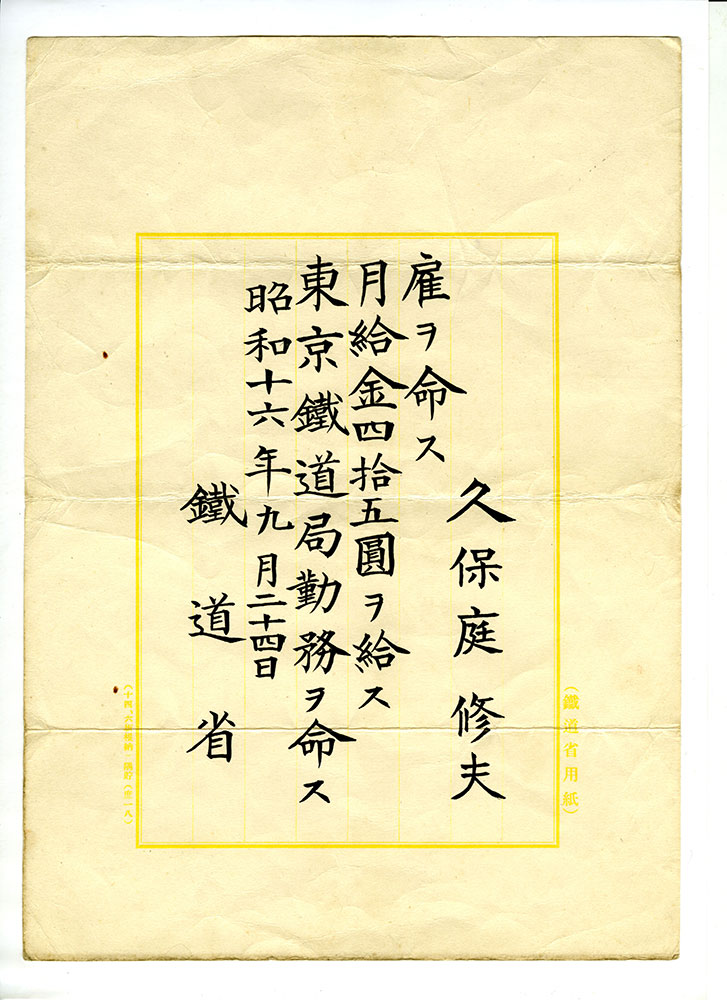 （鐵道省用紙）
久保庭修夫
雇ヲ命ス
月給金四拾五圓ヲ給ス
東京鐵道局勤務ヲ命ス
昭和十六年九月二十四日
鐵道省